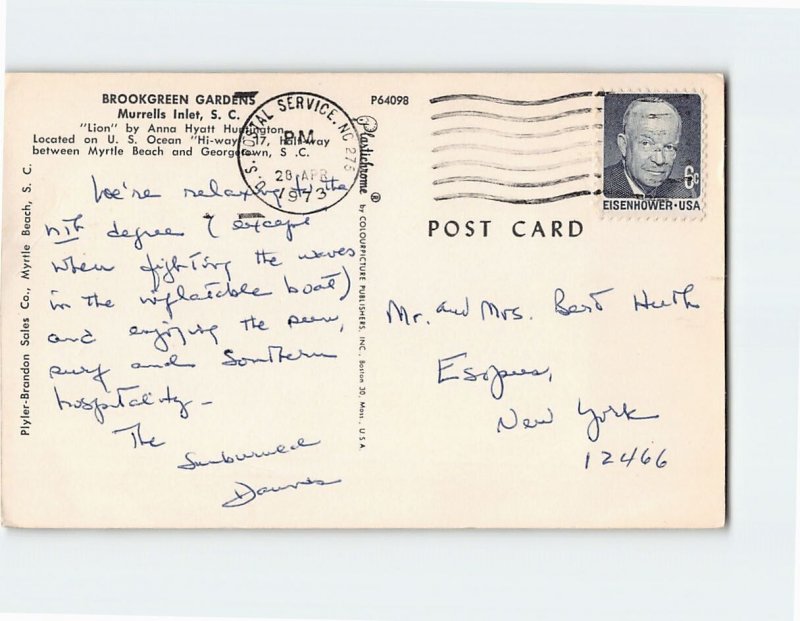 BROOKGREEN GARDENS
Murrells Inlet, S. C.
"Lion" by Anna Hyatt Huntington
Located on U. S. Ocean "Hi-way" 17, Half-way
between Myrtle Beach and Georgetown, S .C.
P64098
U.S. POSTAL SERVICE, NC 275
PM
28 APR
1973
6c
EISENHOWER·USA
Plyler-Brandon Sales Co., Myrtle Beach, S. C.
Plastichrome ® by COLOURPICTURE PUBLISHERS, INC., Boston 30, Mass., U.S.A.
We're relaxing to the
nth degree (except
when fighting the waves
in the inflatable boat)
and enjoying the
surf and Southern
hospitality-
The
Sunburned
POST CARD
Mr. and Mrs. Bert Huth
Esopus,
New York
12466